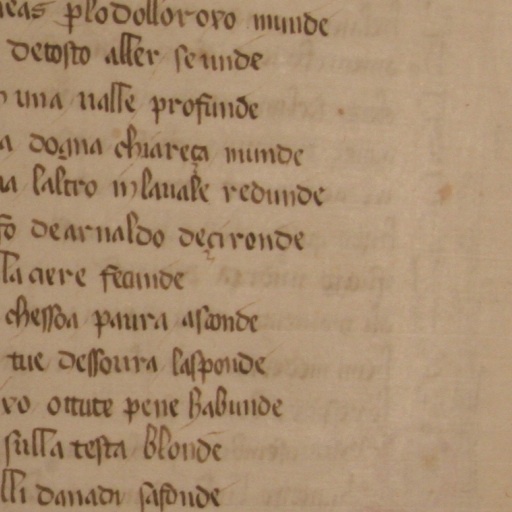 plo dollor ovo munde
detosto aller seunde
una ualle profunde
dogna chiareça munde
laltro inlauale redunde
dearnaldo deçironde
aere fecunde
chessoa paura asconde
tue dessoura lasponde
vo ottute pene habunde
sulla testa blonde
lli danadi safonde